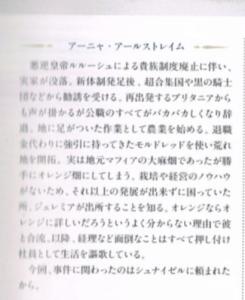 アーニャ・アールストレイム
悪逆皇帝ルルーシュによる貴族制度廃止に伴い、
実家が没落。新体制発足後、超合集国や黒の騎士
団などから勧誘を受ける。再出発するブリタニアから
も声が掛かるが公職のすべてがバカバカしくなり辞
退。地に足がついた作業として農業を始める。退職
金代わりに強引に持ってきたモルドレッドを使い荒れ
地を開拓。実は地元マフィアの大麻畑であったが勝
手にオレンジ畑にしてしまう。栽培や経営のノウハウ
がないため、それ以上の発展が出来ずに困っていた
所、ジェレミアが出所することを知る。オレンジならオ
レンジに詳しいだろうというよく分からない理由で彼
と合流。以降、経理など面倒なことはすべて押し付け
社員として生活を謳歌している。
今回、事件に関わったのはシュナイゼルに頼まれた
から。